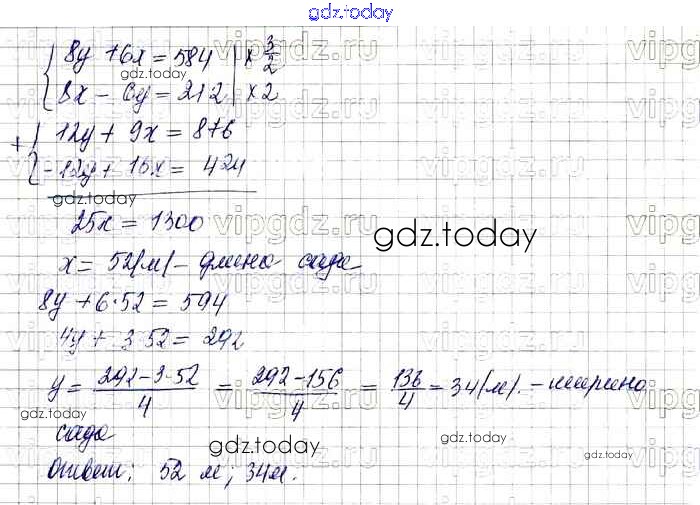 gdz.today
8y + 6x = 584 | × 3/2
gdz.today
8x − 6y = 212 | × 2
+ 12y + 9x = 876
−12y + 16x = 424
gdz.today
25x = 1300
gdz.today
x = 52 (м) – длина сада
8y + 6·52 = 594
4y + 3·52 = 292
y = (292−3·52)/4 = (292−156)/4 = 136/4 = 34 (м). – ширина
gdz.today
сада
gdz.today
gdz.today
gdz.today
Ответ: 52 м; 34 м.
vipgdz.ru